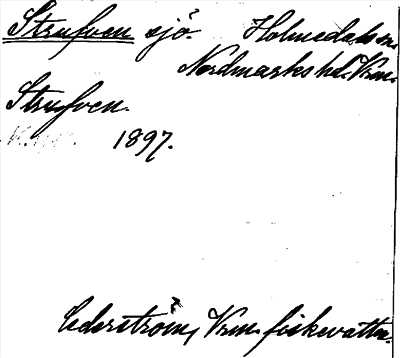 Strufven sjö. Holmedals sn.
Nordmarks hd. Vrm.
Strufven.
1897.
Cederström, Vrm. fiskevatten.